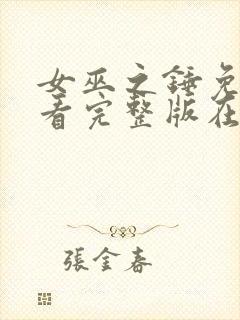 女巫之锤免
看完整版在
張金春